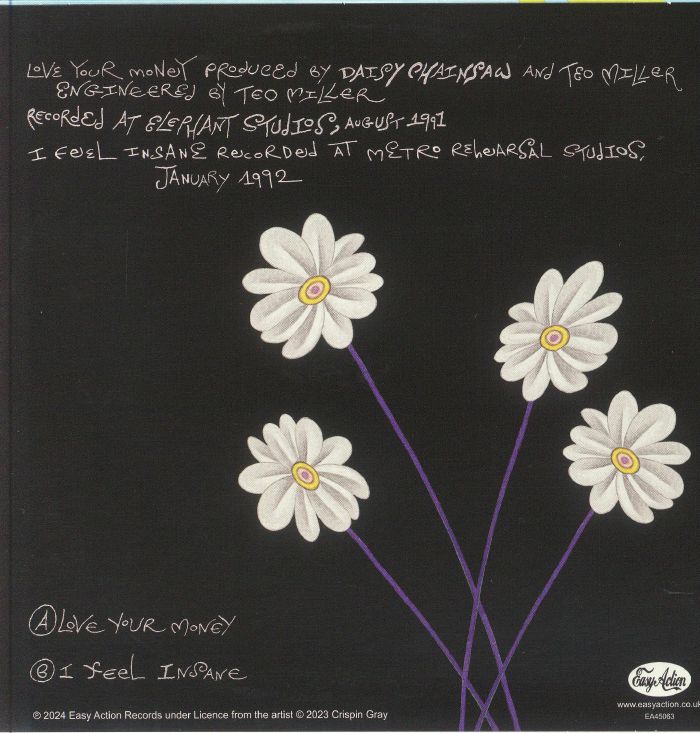 LOVE YOUR MONEY PRODUCED BY DAISY CHAINSAW AND TEO MILLER
ENGINEERED BY TEO MILLER
RECORDED AT ELEPHANT STUDIOS, AUGUST 1991
I FEEL INSANE RECORDED AT METRO REHEARSAL STUDIOS,
JANUARY 1992
A LOVE YOUR MONEY
B I FEEL INSANE
Easy Action
℗ 2024 Easy Action Records under Licence from the artist © 2023 Crispin Gray
www.easyaction.co.uk
EA45063